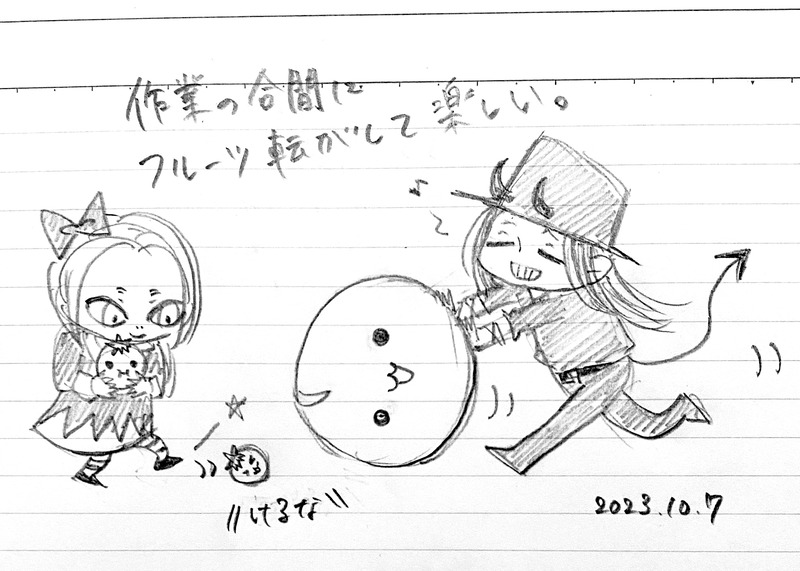 作業の合間に
フルーツ転がして楽しい。
けるな
2023.10.7